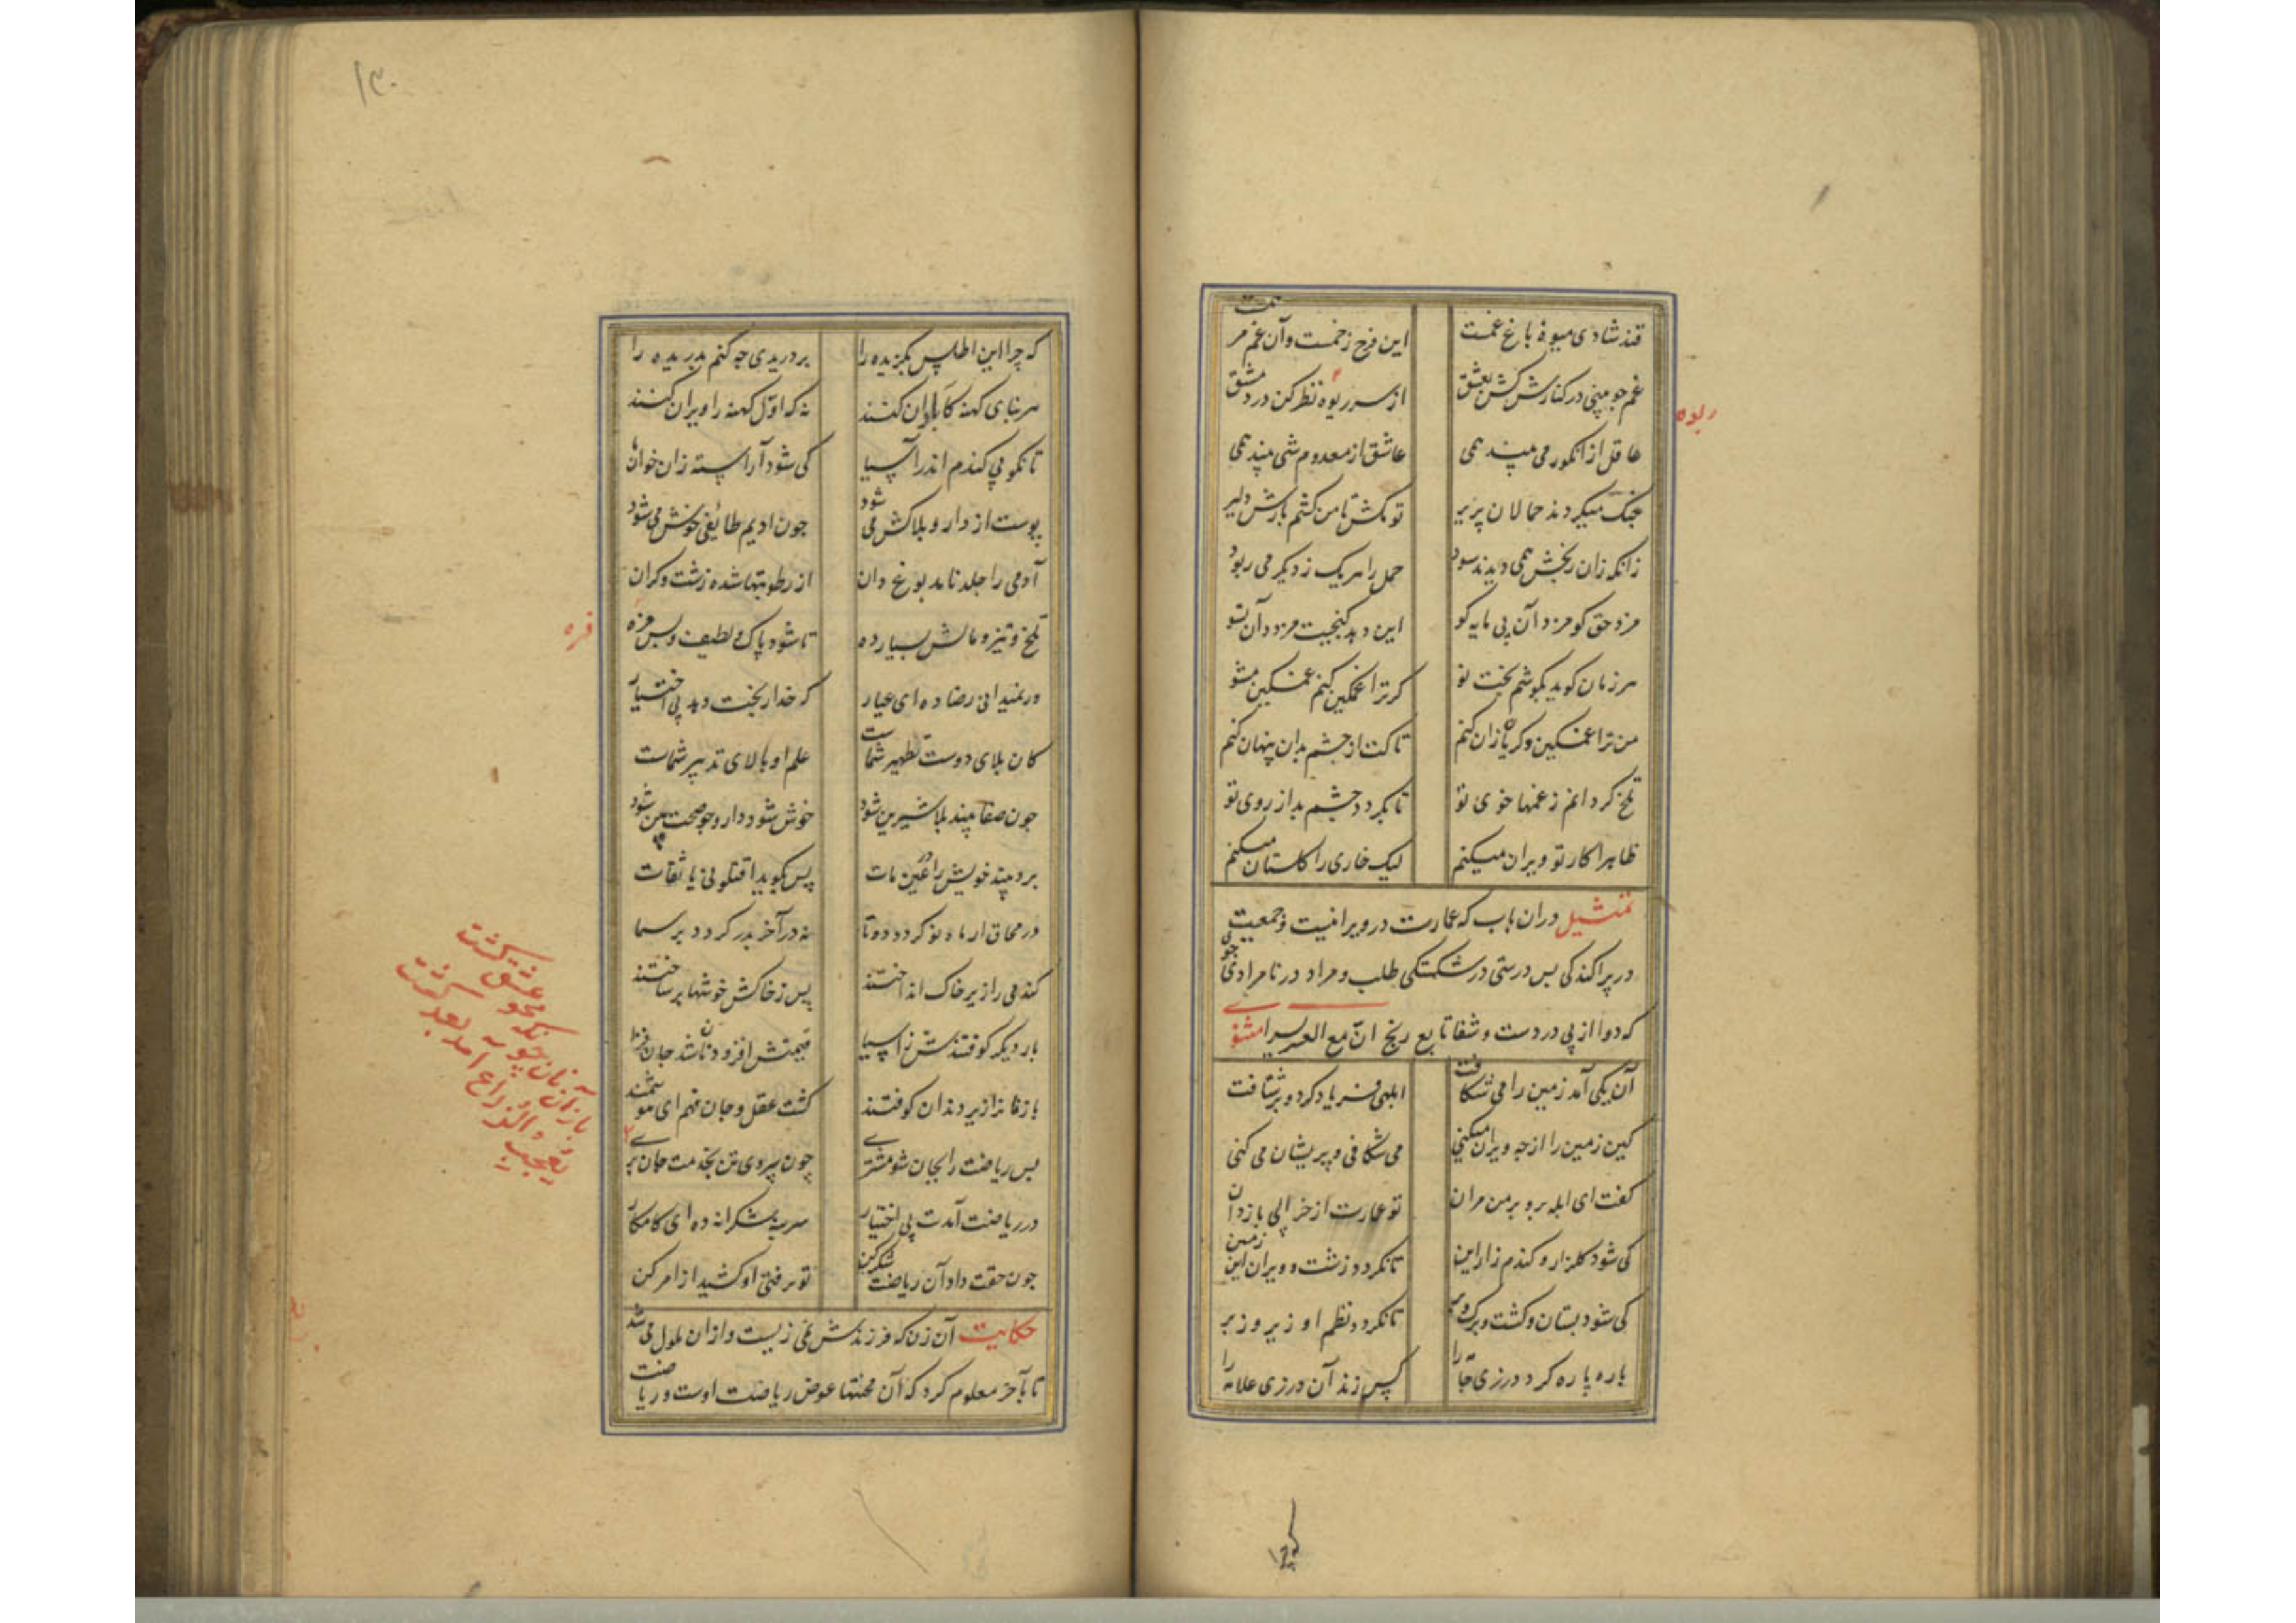 قند شادی میوهٔ باغ غمست این فرح زخمست وآن غم مرهمست
غم چو بینی در کنارش کش بعشق از سر ربوه نظر کن در دمشق
ربوه
عاقل از انکور می بیند همی عاشق از معدوم شی بیند همی
جنک میکردند حمالان پریر تو مکش تا من کشم بارش دلیر
زانکه زان رنجش همی دیدند سود حمل را هر یک ز دیکر می ربود
مزد حق کو مزد آن بی مایه کو این دهد کنجیت مزد وآن تسو
هر زمان کوید بکوشم بخت نو کر ترا غمکین کنم غمکین مشو
من ترا غمکین و کریان زان کنم تا کت از چشم بدان پنهان کنم
تلخ کردانم ز غمها خوی تو تا بکردد چشم بد از روی تو
ظاهرا کار تو ویران میکنم لیک خاری را کلستان میکنم
تمثیل دران باب که عمارت در ویرانیست وجمعیت
در پراکندکی بس درستی در شکستکی طلب و مراد در نامرادی جوی
که دوا از پی دردست وشفا تابع رنج ان مع العسر یسرا مثنوی
آن یکی آمد زمین را می شکافت ابلهی فریاد کرد و بر شتافت
کین زمین را از چه ویران میکنی می شکافی و پریشان می کنی
کفت ای ابله برو بر من مران تو عمارت از خرابی باز دان
کی شود کلزار و کندم زار این تا نکردد زشت و ویران این زمین
کی شود بستان و کشت و برک و بر تا نکردد نظم او زیر و زبر
پاره پاره کرد درزی جامه را کس زند آن درزی علامه را
۱۳۰
که چرا این اطلس بکزیده را بر دریدی چه کنم بدریده را
هر بنای کهنه کآبادان کنند نه که اول کهنه را ویران کنند
تا نکوبی کندم اندر آسیا کی شود آراسته زان خوان ما
پوست از دارو بلاکش می شود چون ادیم طائفی خوش می شود
آدمی را جلد نامدبوغ دان از رطوبتها شده زشت و کران
تلخ و تیز و مالش بسیار ده تا شود پاک و لطیف و بس مزه
فره
ور نمیدانی رضا ده ای عیار که خدا رنجت دهد بی اختیار
کان بلای دوست تطهیر شماست علم او بالای تدبیر شماست
چون صفا بیند بلا شیرین شود خوش شود دارو چو صحت بین شود
برد بیند خویش را در عین مات پس بکوید اقتلونی یا ثقات
در محاق ار ماه نو کردد دو تا نه در آخر بدر کردد بر سما
کندمی را زیر خاک انداختند پس ز خاکش خوشها بر ساختند
بار دیکر کوفتندش ز آسیا قیمتش افزود نان شد جان فزا
باز نان را زیر دندان کوفتند کشت عقل و جان فهم ای هوشمند
باز آن جان چونکه محو عشق کشت
یعجب الزراع آمد بعد کشت
پس ریاضت را بجان شو مشتری چون سپردی تن بخدمت جان بری
ور ریاضت آمدت بی اختیار سر بنه شکرانه ده ای کامکار
چون حقت داد آن ریاضت شکر کن تو نرفتی او کشید از امر کن
حکایت آن زن که فرزندش نمی زیست و ازان ملول می شد
تا بآخر معلوم کرد که آن محنتها عوض ریاضت اوست و ریاضت